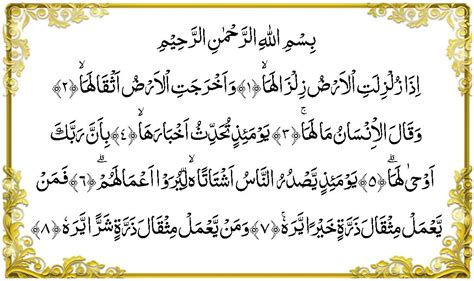 بِسْمِ اللهِ الرَّحْمٰنِ الرَّحِيْمِ
اِذَا زُلْزِلَتِ الْاَرْضُ زِلْزَالَهَاۙ ﴿١﴾ وَاَخْرَجَتِ الْاَرْضُ اَثْقَالَهَاۙ ﴿٢﴾
وَقَالَ الْاِنْسَانُ مَا لَهَاۚ ﴿٣﴾ يَوْمَئِذٍ تُحَدِّثُ اَخْبَارَهَاۙ ﴿٤﴾ بِاَنَّ رَبَّكَ
اَوْحٰى لَهَاۗ ﴿٥﴾ يَوْمَئِذٍ يَّصْدُرُ النَّاسُ اَشْتَاتًا ەۙ لِّيُرَوْا اَعْمَالَهُمْۗ ﴿٦﴾ فَمَنْ
يَّعْمَلْ مِثْقَالَ ذَرَّةٍ خَيْرًا يَّرَهٗۚ ﴿٧﴾ وَمَنْ يَّعْمَلْ مِثْقَالَ ذَرَّةٍ شَرًّا يَّرَهٗ ﴿٨﴾